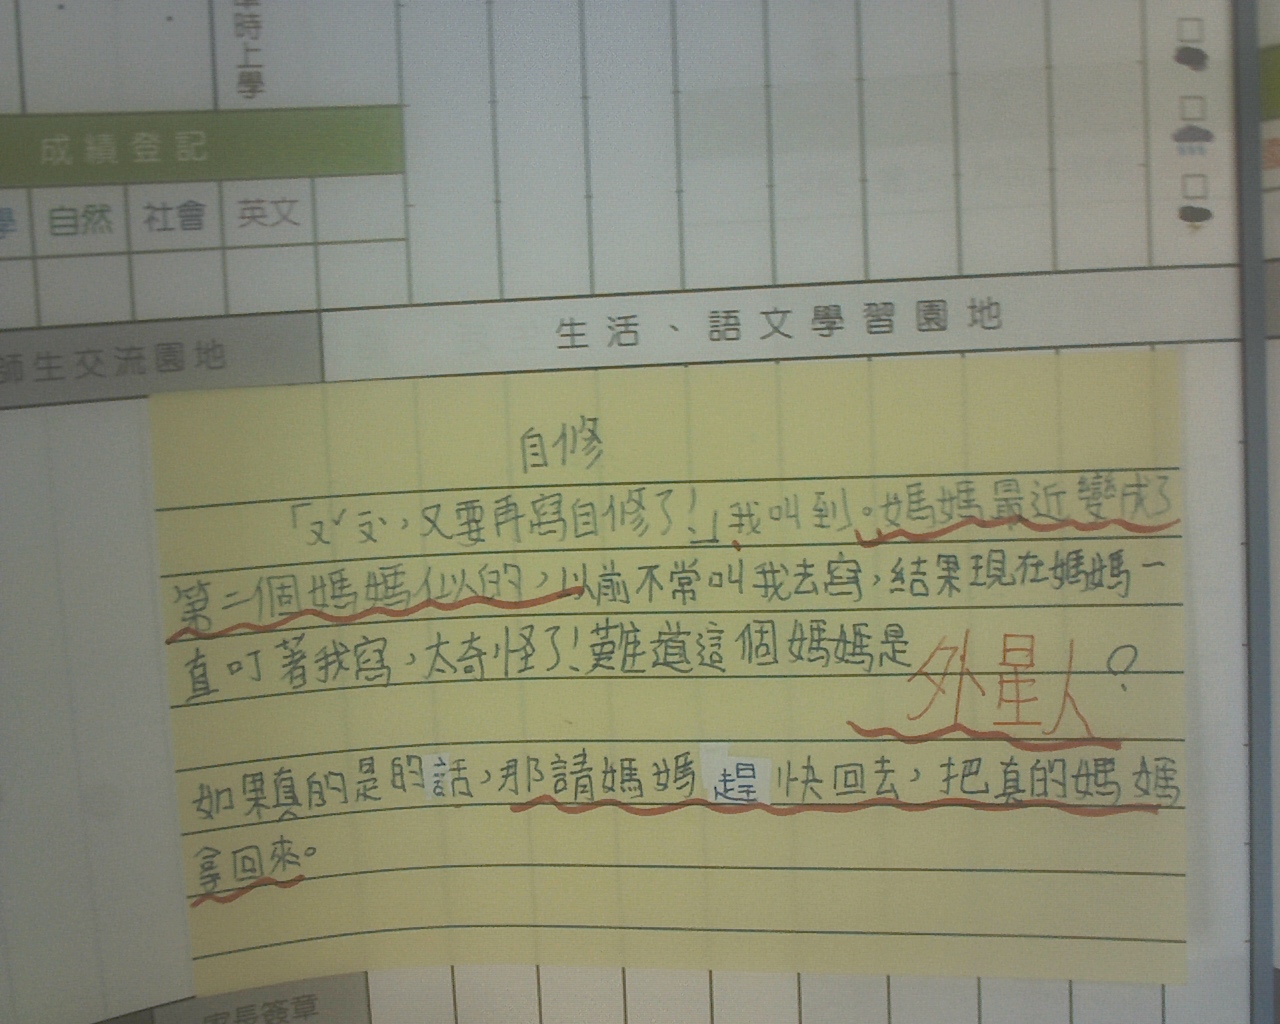 時上學
成績登記
學 自然 社會 英文
師生交流園地
生活、語文學習園地
自修
「ㄡˇㄡˋ,又要再寫自修了!」我叫到。媽媽最近變成了
第二個媽媽似的,以前不常叫我去寫,結果現在媽媽一
直叮著我寫,太奇怪了!難道這個媽媽是外星人?
如果真的是的話,那請媽媽趕快回去,把真的媽媽
拿回來。
家長簽章